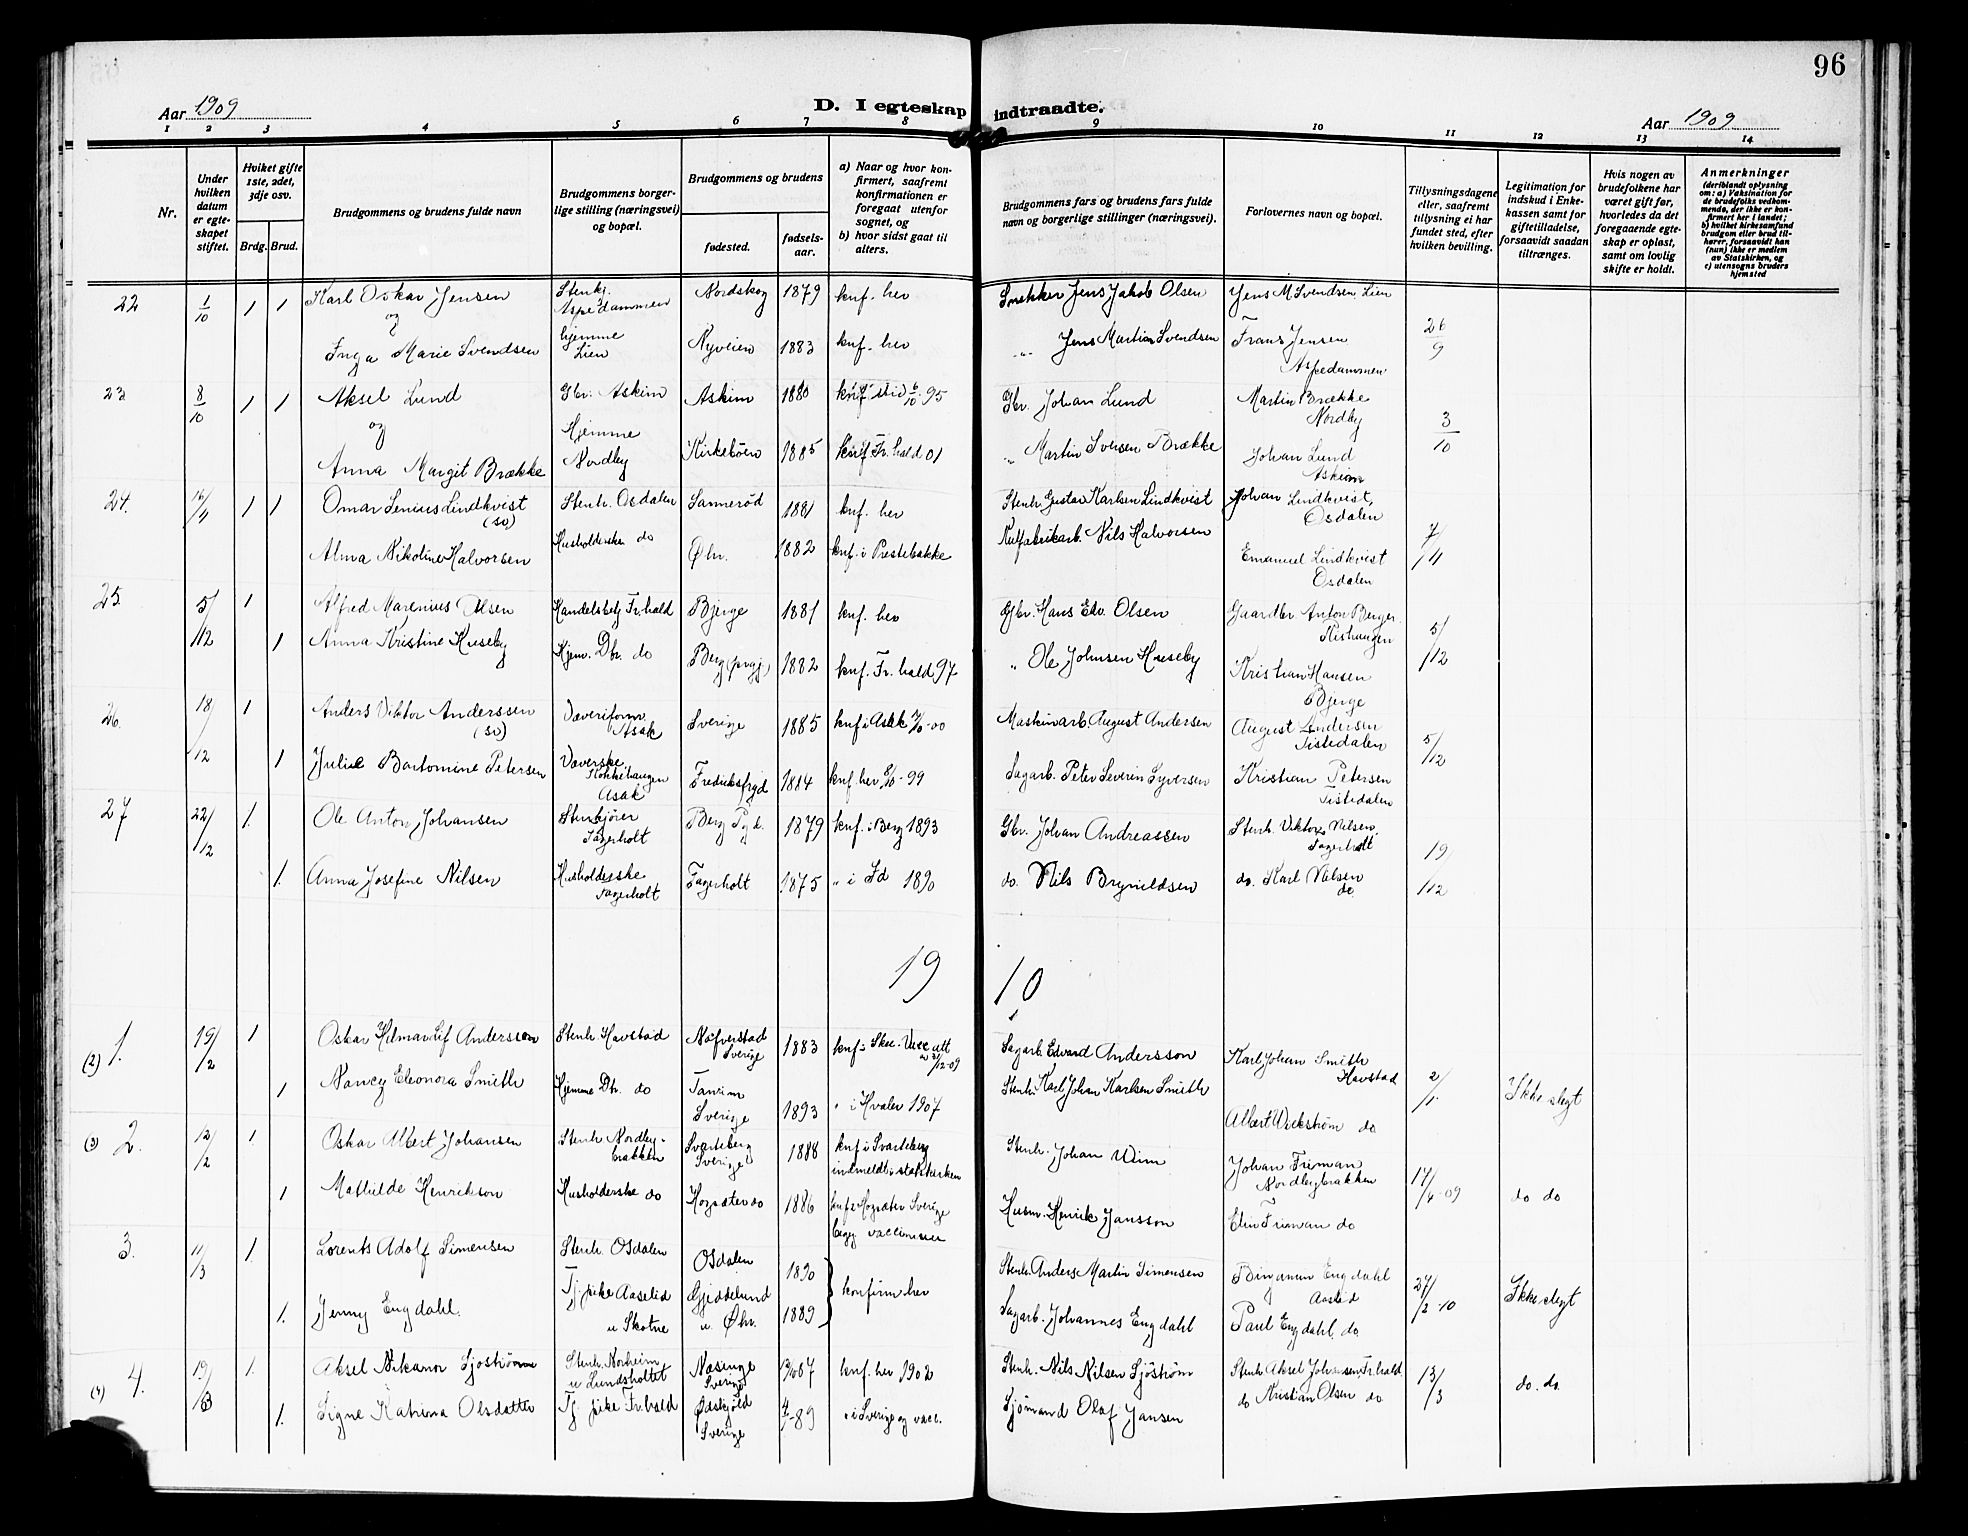 96
Aar 1909
D. I egteskap indtraadte.
Aar 1909
1 2 3 4 5 6 7 8 9 10 11 12 13 14
Nr.
Under hvilken datum er egteskapet stiftet.
Hvilket gifte 1ste, 2det, 3dje osv.
Brdg. Brud.
Brudgommens og brudens fulde navn
Brudgommens borgerlige stilling (næringsvei) og bopæl.
Brudgommens og brudens
fødested.
fødselsaar.
a) Naar og hvor konfirmert, saafremt konfirmationen er foregaat utenfor sognet, og
b) hvor sidst gaat til alters.
Brudgommens fars og brudens fars fulde navn og borgerlige stillinger (næringsvei).
Forlovernes navn og bopæl.
Tillysningsdagene eller, saafremt tillysning ei har fundet sted, efter hvilken bevilling.
Legitimation for indskud i Enkekassen samt for giftetilladelse, forsaavidt saadan tiltrænges.
Hvis nogen av brudefolkene har været gift før, hvorledes da det foregaaende egteskap er opløst, samt om lovlig skifte er holdt.
Anmerkninger
(deriblandt oplysning om: a) Vaksination for de brudefolks vedkommende, der ikke er konfirmert her i landet; b) hvilket kirkesamfund brudgom eller brud tilhører, forsaavidt han (hun) ikke er medlem av Statskirken, og c) utensogns bruders hjemsted
22 1/10 1 1 Karl Oskar Jensen Stenh. Aspedammen Nordskog 1879 knf. her Snekker Jens Jakob Olsen Jens M. Svendsen Lien 26/9
og
Inga Marie Svendsen hjemme Lien Nyveien 1883 knf. her " Jens Martin Svendsen Frans Jensen Aspedammen
23 8/10 1 1 Aksel Lund Gbr. Askim Askim 1880 95 Gbr. Johan Lund Martin Brække Nordby 3/10
og
Anna Margit Brække Hjemme Nordby Kirkebøen 1885 knf Fr.hald 01 " Martin Brække Johan Lund Askim
24. 16/4 1 1 Omar Senius Lindkvist (sv) Stenh. Osdalen Sannerød 1881 knf. her Stenh. Gustav Karlsen Lindkvist Johan Lindkvist Osdalen 7/4
Alma Nikoline Halvorsen Husholderske do Øhr. 1882 knf. i Prestebakke Nils Halvorsen Emanuel Lindkvist Osdalen
25 5/12 1 Alfred Marenius Olsen Handelsbetj. Fr.hald Bjerge 1881 knf. her Gbr. Hans Edv. Olsen Gaardbr. Anton Berger 5/12
1 Anna Kristine Huseby Hjem. Dtr. do Berg 1882 knf. Fr.hald 97 " Ole Johnsen Huseby Kristian Hansen Bjerge
26. 18/12 1 Anders Viktor Anderssen (sv) Væveriform. Asak Sverige 1885 knf i Asak 00 Maskinarb. August Andersen August Andersen Tistedalen 5/12
1 Julie Bartomine Petersen Væverske Asak Fredriksfryd 1884 knf her 99 Sagarb. Peter Severin Syversen Kristian Petersen Tistedalen
27 22/12 1. Ole Anton Johansen Fagerholt Berg 1879 knf. i Berg 1893 Gbr. Johan Andreassen Stenh. Viktor Nilsen Fagerholt 19/12
1. Anna Josefine Nilsen Husholderske Fagerholt Fagerholt 1875 " i Id 1890 do. Nils Brynildsen do. Karl Nilsen do
19 10
(2) 1. 19/2 1 Oskar Hilmar Leif Andersson Stenh. Havstad Nafverstad Sverige 1883 Sagarb. Edvard Andersson Karl Johan Smith Havstad 2/1 Ikke slegt
1 Nancy Eleonora Smith Hjemme Dtr. do Tanum Sverige 1893 " i Hvaler 1907 Stenh. Karl Johan Karlsen Smith Albert Wickstrøm do
(3) 2. 12/2 1. Oskar Albert Johansen Stenh Nordbybrækken Svarteberg Sverige 1888 knf i Svarteberg indmeldt i statskirken Stenh. Johan Johan Friman Nordbybrækken 17/4 09 do do
1 Mathilde Henrikson Husholderske do do 1886 Sverige begge vaccinerer Husm. Henrik Jansson Elin Friman do
3. 11/3 1. Lorents Adolf Simensen Stenh. Osdalen Osdalen 1890 konfirm her Stenh. Anders Martin Simensen Engdahl Aaselid 27/2 10 Ikke slegt
1. Jenny Engdahl. Tj. pike Aaselid u Skotne Gjeddelund u. Øhr. 1889 Sagarb. Johannes Engdahl Paul Engdahl. do
(4) 4. 19/3 1. Aksel Nikanor Sjøstrøm Stenh. Norheim u Lundsholtet Næsinge Sverige 87 knf. her 1902 Stenh. Nils Nilsen Sjöström Stenh Aksel Johansen Fr.hald 13/3 do. do.
1. Signe Katrina Olsdatter Tj. pike Fr.hald Ødskjøld Sverige 89 " i Sverige og vacc. Sjømand Olaf Jansen do Kristian Olsen do